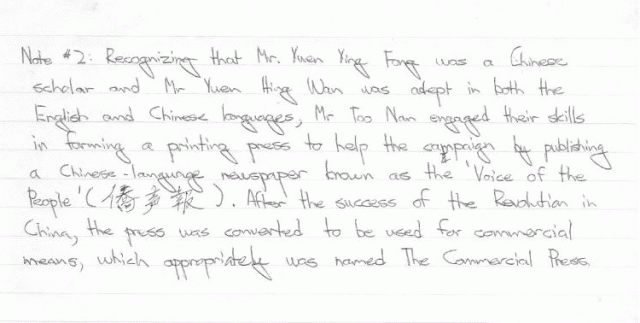 Note #2: Recognizing that Mr. Yuen Ying Fong was a Chinese
scholar and Mr Yuen Hing Wan was adept in both the
English and Chinese languages, Mr Too Nam engaged their skills
in forming a printing press to help the campaign by publishing
a Chinese-language newspaper known as the 'Voice of the
People' (僑声報). After the success of the Revolution in
China, the press was converted to be used for commercial
means, which appropriately was named The Commercial Press.